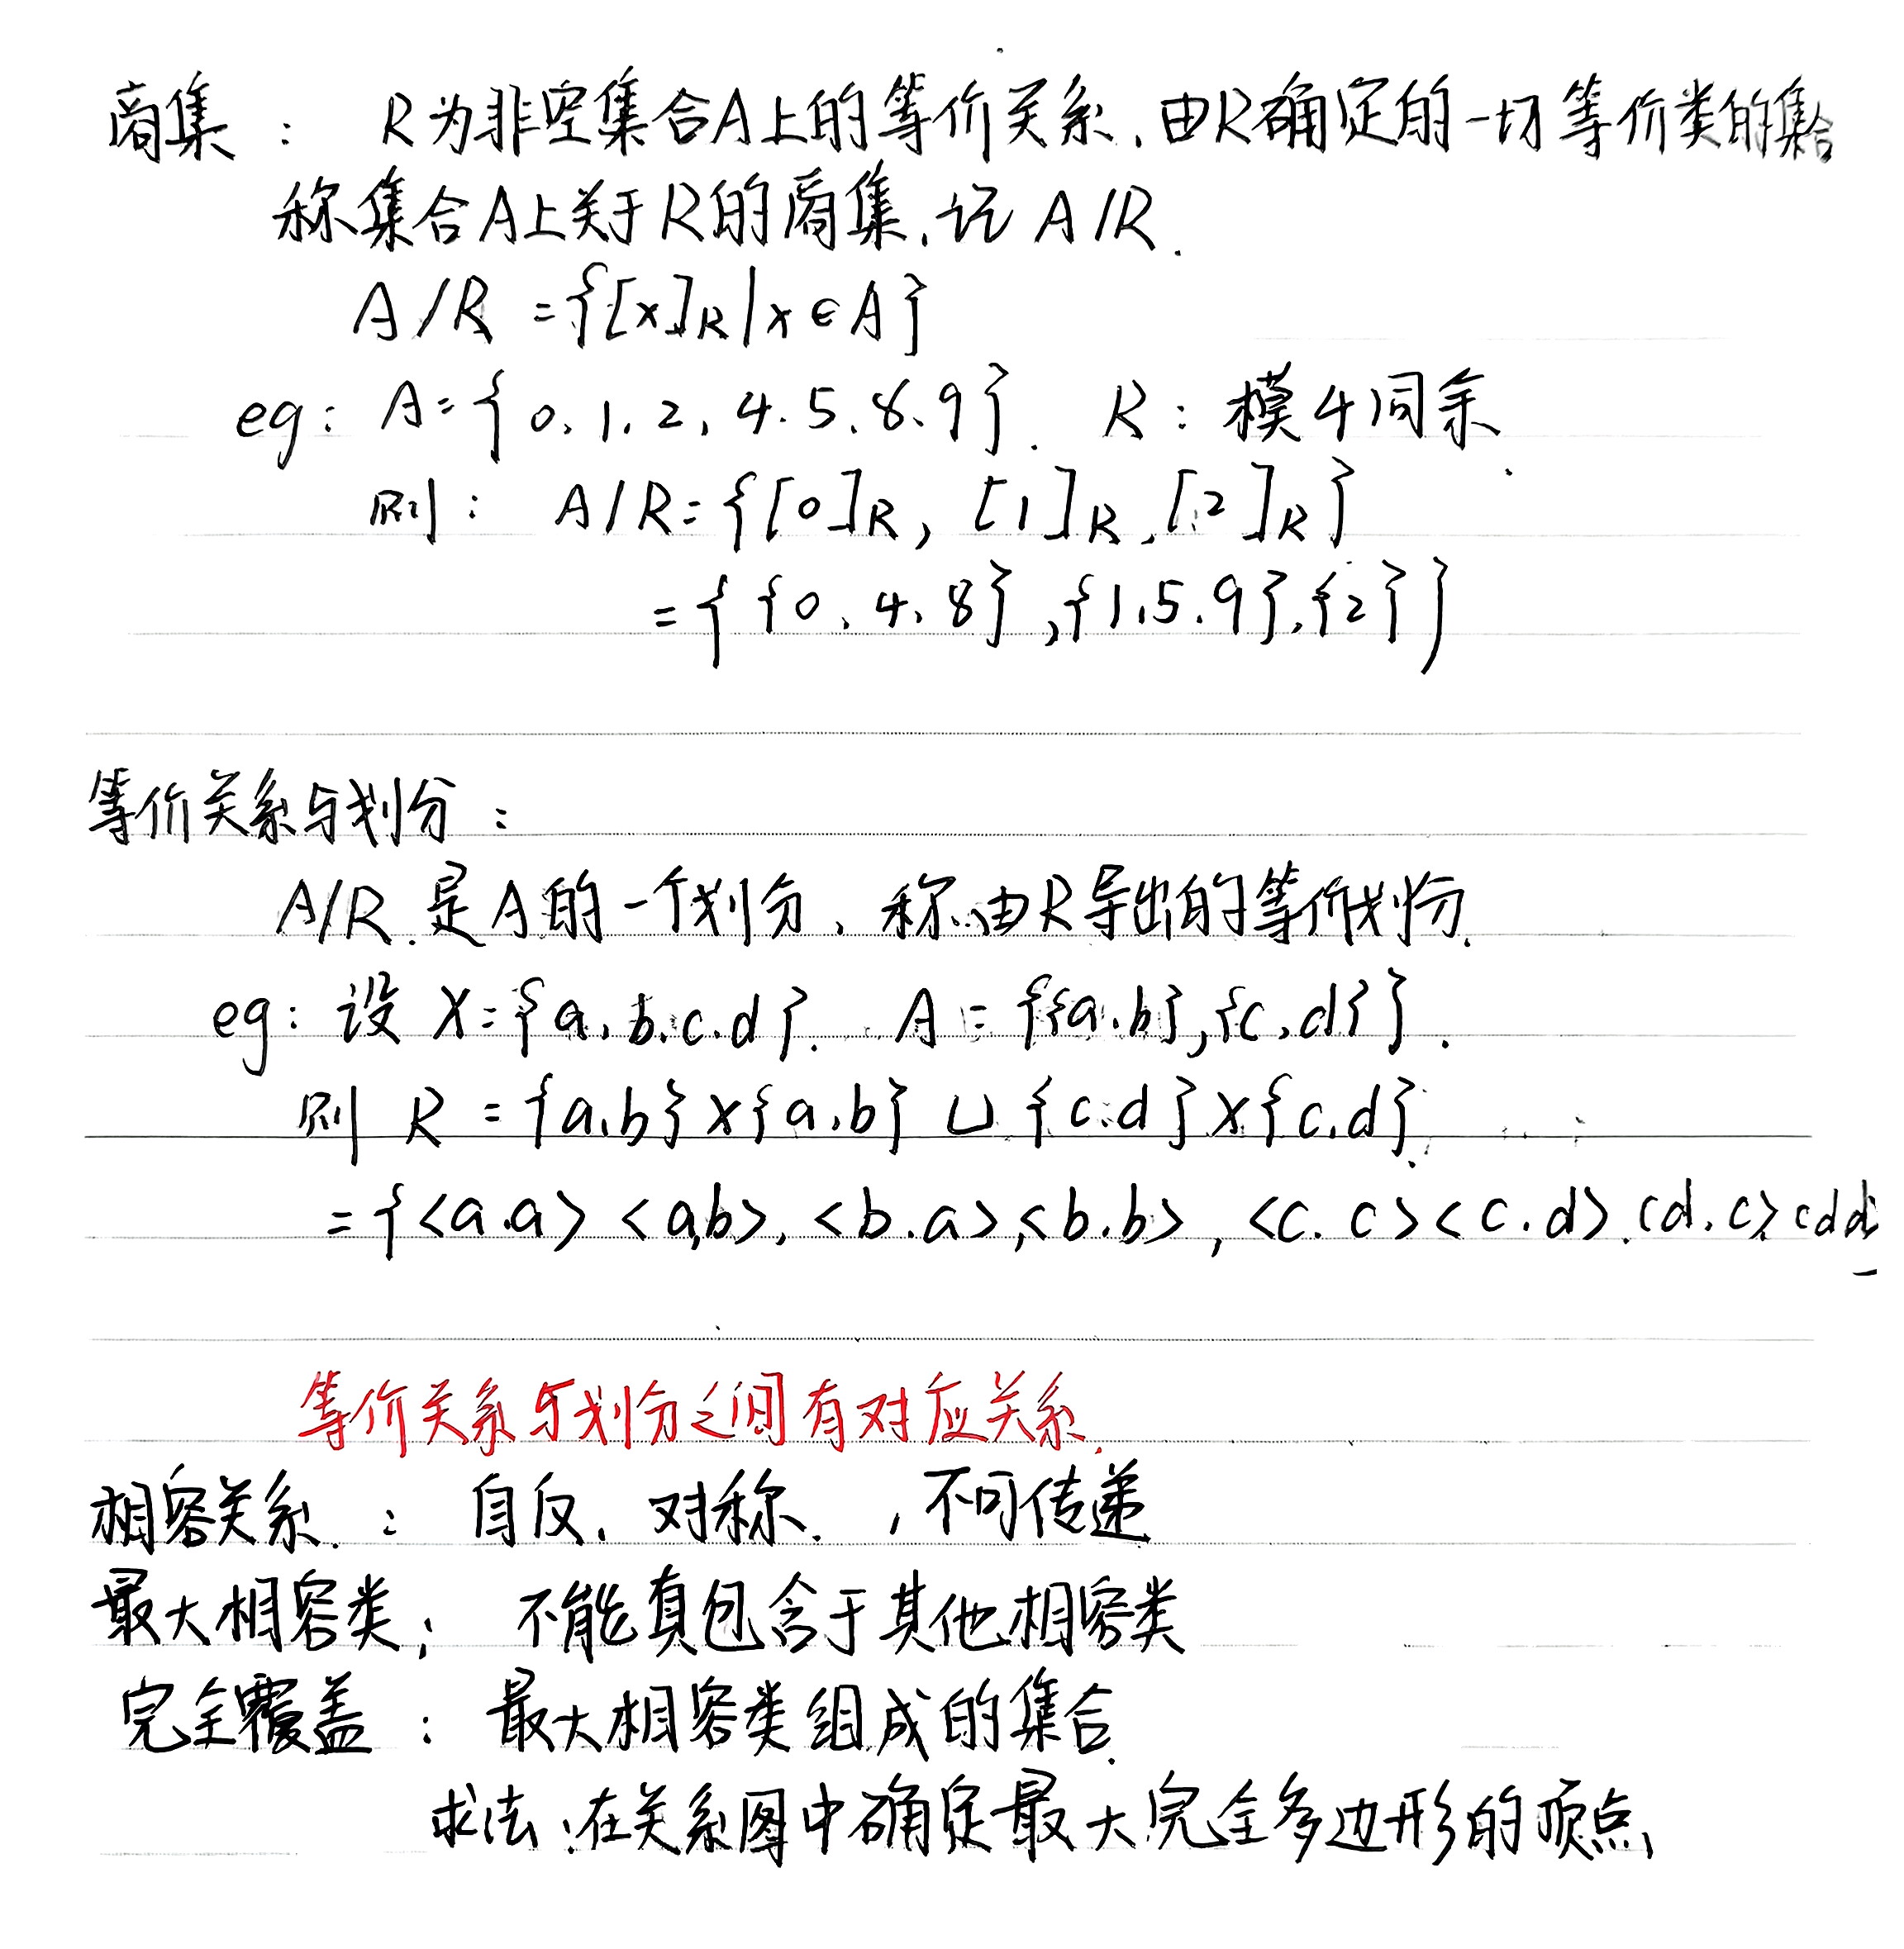 商集： R为非空集合A上的等价关系，由R确定的一切等价类的集合
称集合A上关于R的商集，记A/R.
A/R={[x]R|x∈A}
eg: A={0,1,2,4.5.8.9}. R：模4同余.
则： A/R={[0]R, [1]R,[2]R}
={{0,4,8},{1.5.9},{2}}
等价关系与划分：
A/R是A的一个划分，称由R导出的等价划分.
eg: 设X={a,b.c.d}. A={{a.b},{c,d}}.
则 R={a,b}×{a,b}∪{c.d}×{c,d}.
={<a.a> <a,b>,<b.a>,<b.b>,<c.c><c.d>.<d.c>,<d d>
等价关系与划分之间有对应关系.
相容关系： 自反，对称，不可传递
最大相容类； 不能真包含于其他相容类
完全覆盖： 最大相容类组成的集合.
求法：在关系图中确定最大完全多边形的顶点